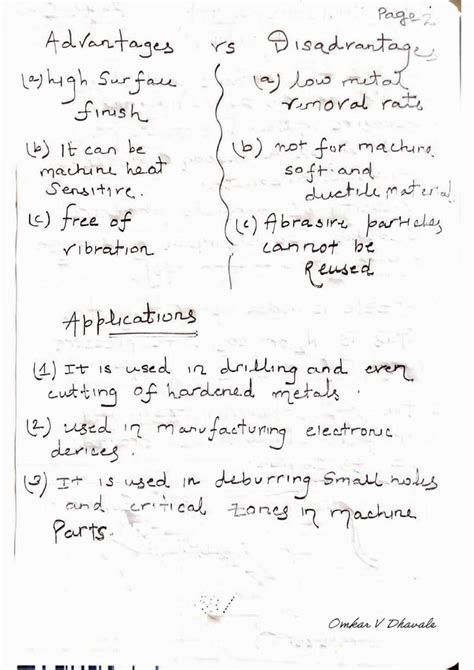 Page-2
Advantages vs Disadvantages
(a) high Surface
finish
(b) It can be
machine heat
Sensitive.
(c) free of
vibration
(a) low metal
removal rate
(b) not for machine
soft and
ductile material
(c) Abrasive particles
cannot be
Reused
Applications
(1) It is used in drilling and even
cutting of hardened metals.
(2) used in manufacturing electronic
devices.
(3) It is used in deburring Small holes
and critical zones in machine
Parts.
Omkar V Dhavale